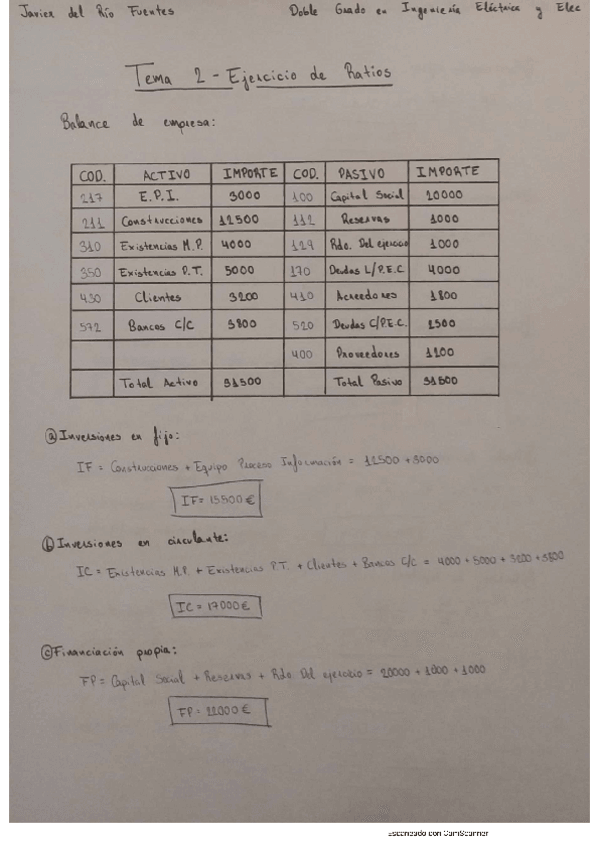 Javier del Río Fuentes Doble Grado en Ingeniería Eléctrica y Elec
Tema 2 - Ejercicio de Ratios
Balance de empresa:
COD. ACTIVO IMPORTE COD. PASIVO IMPORTE
217 E.P.I. 3000 100 Capital Social 20000
211 Construcciones 12500 112 Reservas 1000
310 Existencias M.P. 4000 129 Rdo. Del ejercicio 1000
350 Existencias P.T. 5000 170 Deudas L/P.E.C 4000
430 Clientes 3200 410 Acreedores 1800
572 Bancos C/C 3800 520 Deudas C/P.E.C. 2500
400 Proveedores 1200
Total Activo 31500 Total Pasivo 31500
ⓐ Inversiones en fijo:
IF = Construcciones + Equipo Proceso Información = 12500 + 3000
IF = 15500 €
ⓑ Inversiones en circulante:
IC = Existencias M.P. + Existencias P.T. + Clientes + Bancos C/C = 4000 + 5000 + 3200 + 3800
IC = 17000 €
ⓒ Financiación propia:
FP = Capital Social + Reservas + Rdo. Del ejercicio = 20000 + 1000 + 1000
FP = 22000 €
Escaneado con CamScanner